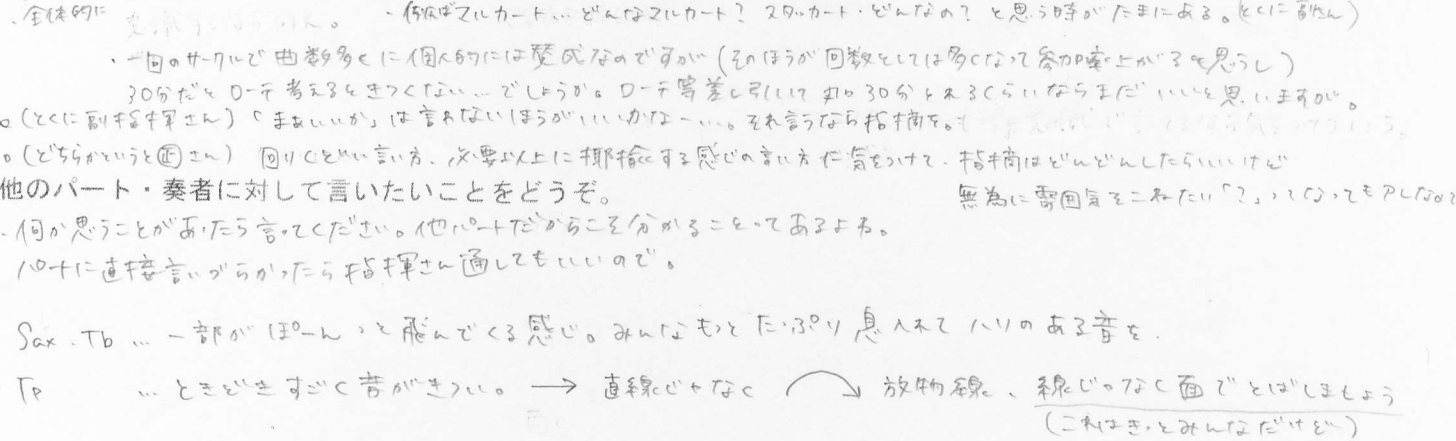 ・全体的に ・例えばマルカート…どんなマルカート？スタッカート・どんなの？と思う時がたまにある。(とくに副さん)
・一回のサークルで曲数多くに個人的には賛成なのですが(そのほうが回数としては多くなって参加率上がると思うし)
30分だとローテ考えるときつくない…でしょうか。ローテ等差し引いて丸々30分とれるくらいならまだいいと思いますが。
○(とくに副指揮さん)「まぁいいか」は言わないほうがいいかなー…。それ言うなら指摘を。
○(どちらかというと㊣さん) 回りくどい言い方、必要以上に揶揄する感じの言い方に気をつけて。指摘はどんどんしたらいいけど
無為に雰囲気そこねたい「？」ってなってもアレなので
他のパート・奏者に対して言いたいことをどうぞ。
・何か思うことがあったら言ってください。他パートだからこそ分かることってあるよね。
パートに直接言いづらかったら指揮さん通してもいいので。
Sax.Tb … 一部がぽーんっと飛んでくる感じ。みんなもっとたっぷり息入れてハリのある音を。
Tp … ときどきすごく音がきつい。→ 直線じゃなく 放物線、線じゃなく面でとばしましょう
(これはきっとみんなだけど)